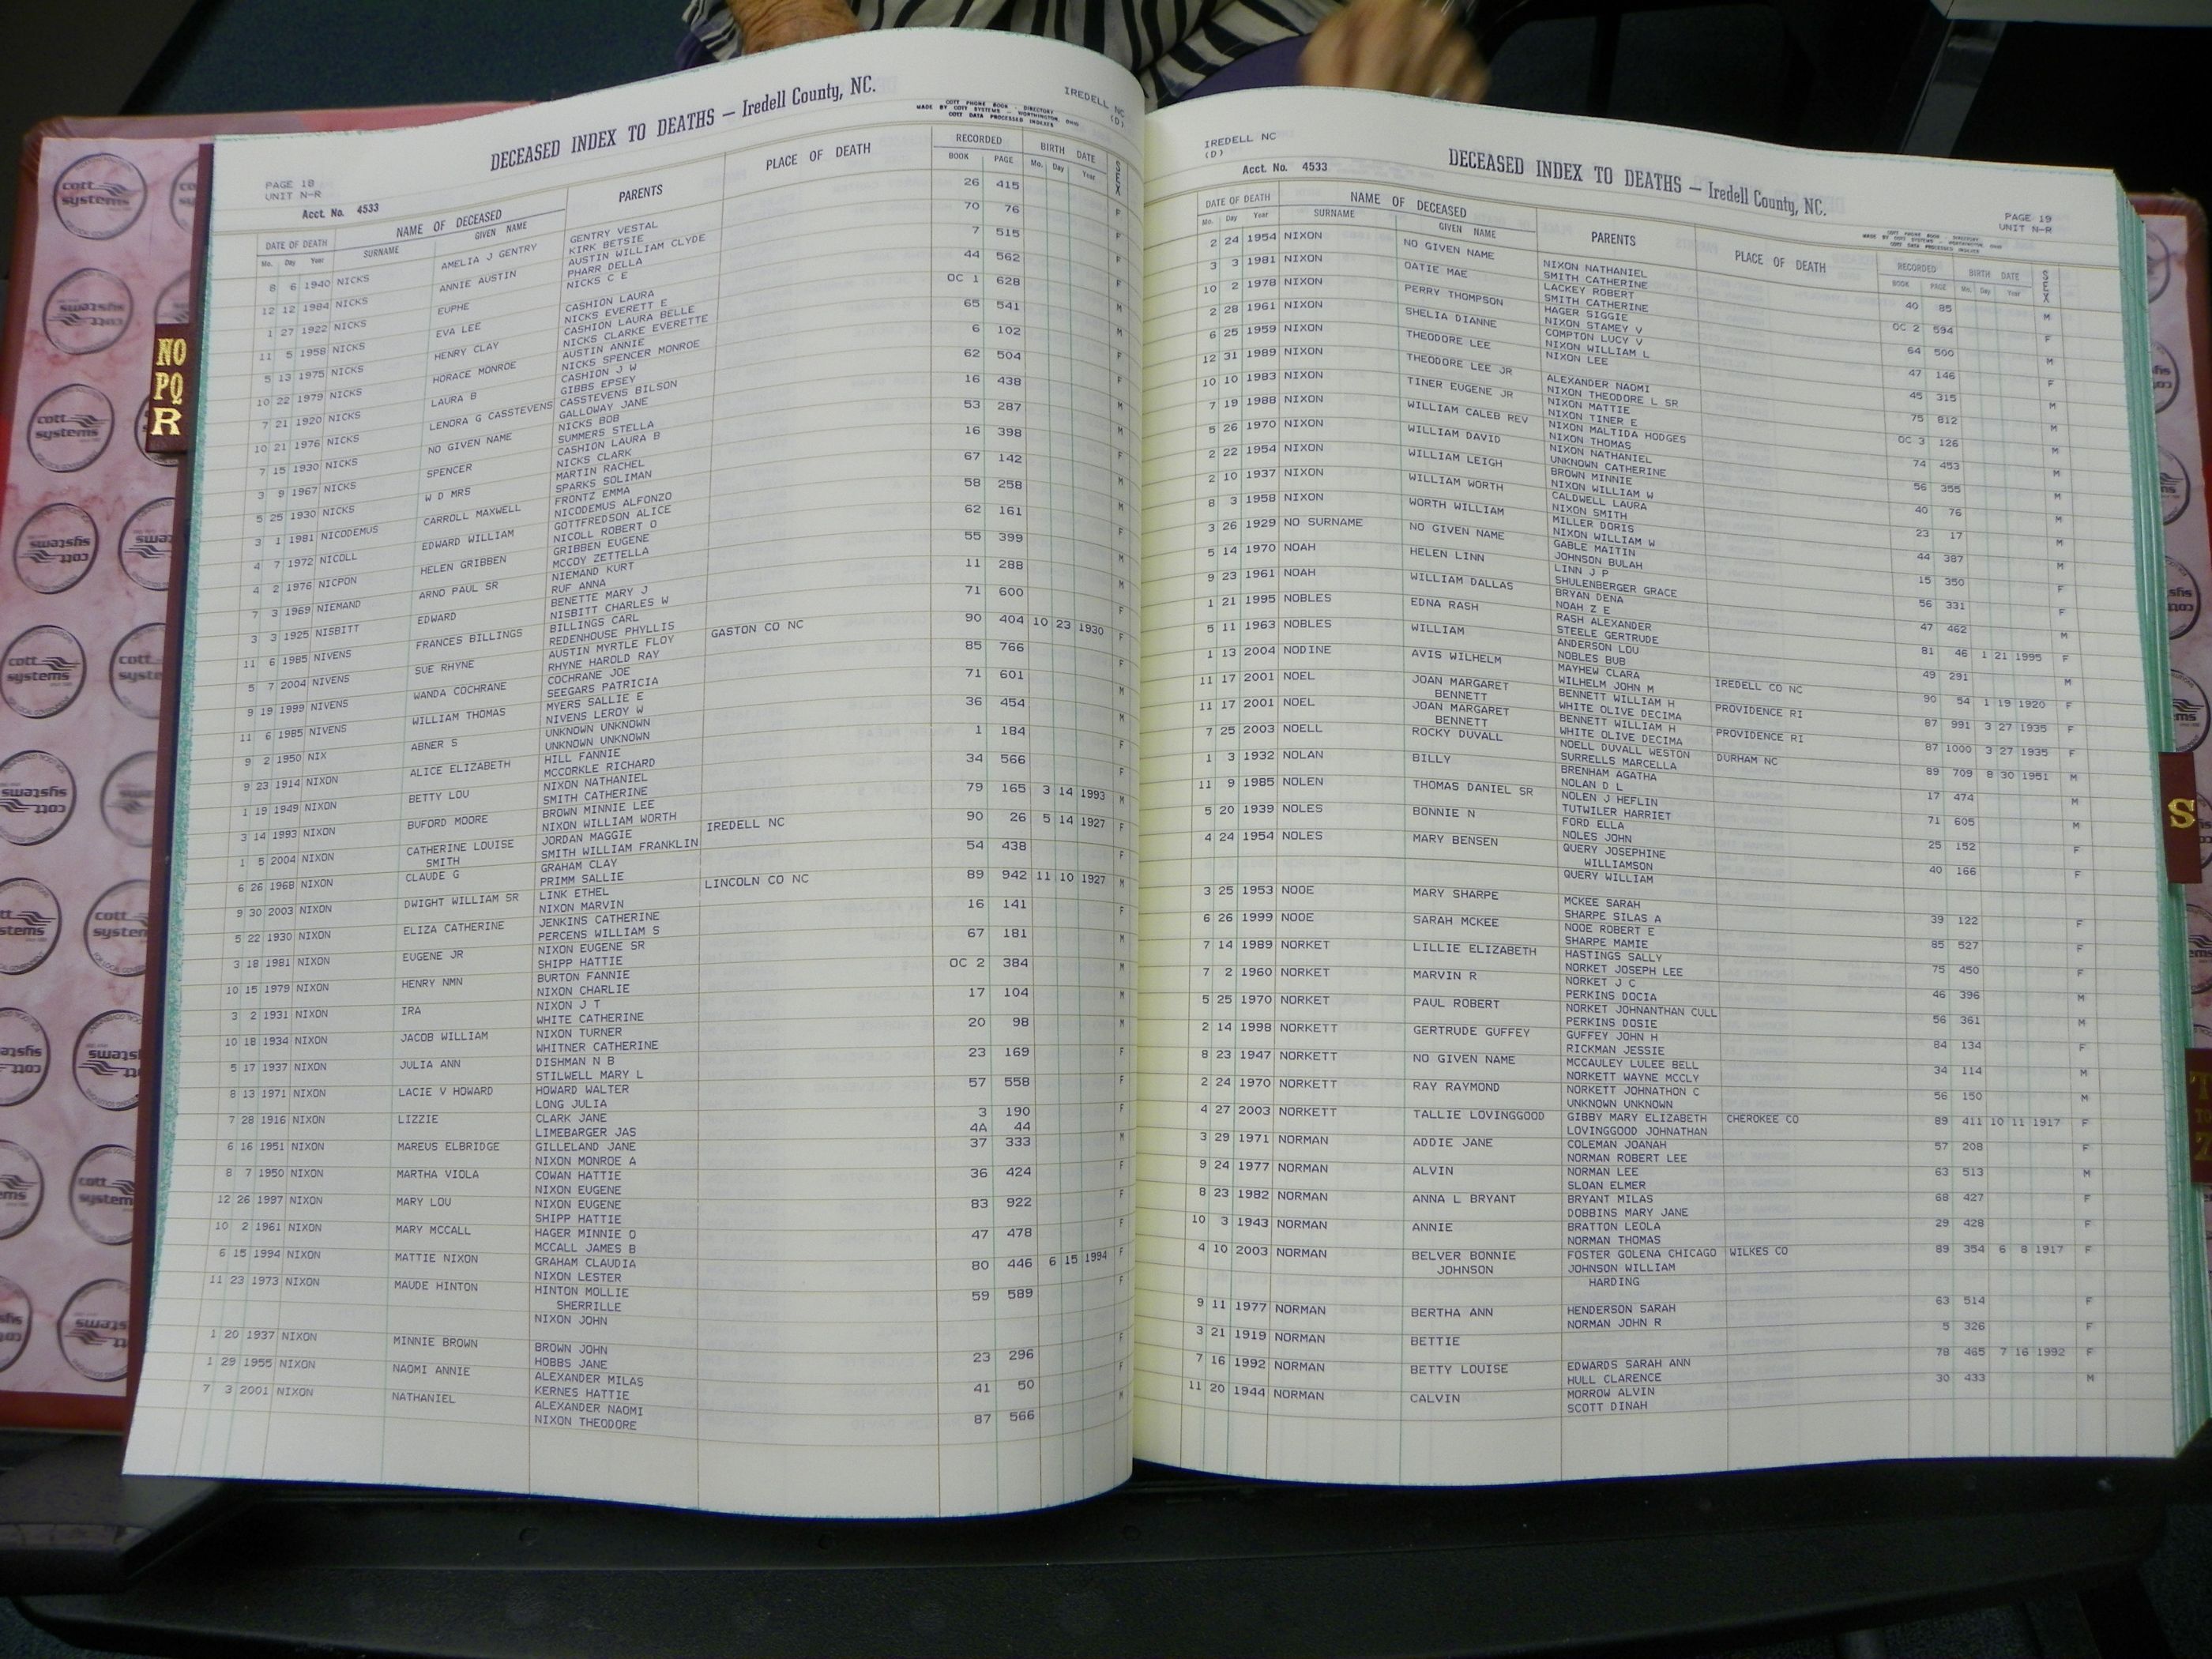 DECEASED INDEX TO DEATHS — Iredell County, NC.
COTT PHONE BOOK - DIRECTORY
MADE BY COTT SYSTEMS - WORTHINGTON, OHIO
COTT DATA PROCESSED INDEXES
IREDELL NC
(D)
PAGE 18
UNIT N-R
Acct. No. 4533
DATE OF DEATH NAME OF DECEASED PARENTS PLACE OF DEATH RECORDED BIRTH DATE SEX
Mo. Day Year SURNAME GIVEN NAME BOOK PAGE Mo. Day Year
8 6 1940 NICKS AMELIA J GENTRY GENTRY VESTAL 26 415 F
KIRK BETSIE
12 12 1984 NICKS ANNIE AUSTIN AUSTIN WILLIAM CLYDE 70 76 F
PHARR DELLA
1 27 1922 NICKS EUPHE NICKS C E 7 515 F
11 5 1958 NICKS EVA LEE CASHION LAURA 44 562 F
NICKS EVERETT E
5 13 1975 NICKS HENRY CLAY CASHION LAURA BELLE OC 1 628 M
NICKS CLARKE EVERETTE
10 22 1979 NICKS HORACE MONROE AUSTIN ANNIE 65 541 M
NICKS SPENCER MONROE
7 21 1920 NICKS LAURA B CASHION J W 6 102 F
GIBBS EPSEY
10 21 1976 NICKS LENORA G CASSTEVENS CASSTEVENS BILSON 62 504 F
GALLOWAY JANE
7 15 1930 NICKS NO GIVEN NAME NICKS BOB 16 438 M
SUMMERS STELLA
3 9 1967 NICKS SPENCER CASHION LAURA B 53 287 M
NICKS CLARK
5 25 1930 NICKS W D MRS MARTIN RACHEL 16 398 F
SPARKS SOLIMAN
3 1 1981 NICODEMUS CARROLL MAXWELL FRONTZ EMMA 67 142 M
NICODEMUS ALFONZO
4 7 1972 NICOLL EDWARD WILLIAM GOTTFREDSON ALICE 58 258 M
NICOLL ROBERT O
4 2 1976 NICPON HELEN GRIBBEN GRIBBEN EUGENE 62 161 F
MCCOY ZETTELLA
7 3 1969 NIEMAND ARNO PAUL SR NIEMAND KURT 55 399 M
RUF ANNA
3 3 1925 NISBITT EDWARD BENETTE MARY J 11 288 M
NISBITT CHARLES W
11 6 1985 NIVENS FRANCES BILLINGS BILLINGS CARL 71 600 F
REDENHOUSE PHYLLIS
5 7 2004 NIVENS SUE RHYNE AUSTIN MYRTLE FLOY GASTON CO NC 90 404 10 23 1930 F
RHYNE HAROLD RAY
9 19 1999 NIVENS WANDA COCHRANE COCHRANE JOE 85 766 F
SEEGARS PATRICIA
11 6 1985 NIVENS WILLIAM THOMAS MYERS SALLIE E 71 601 M
NIVENS LEROY W
9 2 1950 NIX ABNER S UNKNOWN UNKNOWN 36 454 M
UNKNOWN UNKNOWN
9 23 1914 NIXON ALICE ELIZABETH HILL FANNIE 1 184 F
MCCORKLE RICHARD
1 19 1949 NIXON BETTY LOU NIXON NATHANIEL 34 566 F
SMITH CATHERINE
3 14 1993 NIXON BUFORD MOORE BROWN MINNIE LEE 79 165 3 14 1993 M
NIXON WILLIAM WORTH
1 5 2004 NIXON CATHERINE LOUISE JORDAN MAGGIE IREDELL NC 90 26 5 14 1927 F
SMITH SMITH WILLIAM FRANKLIN
6 26 1968 NIXON CLAUDE G GRAHAM CLAY 54 438 F
PRIMM SALLIE
9 30 2003 NIXON DWIGHT WILLIAM SR LINK ETHEL LINCOLN CO NC 89 942 11 10 1927 M
NIXON MARVIN
5 22 1930 NIXON ELIZA CATHERINE JENKINS CATHERINE 16 141 F
PERCENS WILLIAM S
3 18 1981 NIXON EUGENE JR NIXON EUGENE SR 67 181 M
SHIPP HATTIE
10 15 1979 NIXON HENRY NMN BURTON FANNIE OC 2 384 M
NIXON CHARLIE
3 2 1931 NIXON IRA NIXON J T 17 104 M
WHITE CATHERINE
10 18 1934 NIXON JACOB WILLIAM NIXON TURNER 20 98 M
WHITNER CATHERINE
5 17 1937 NIXON JULIA ANN DISHMAN N B 23 169 F
STILWELL MARY L
8 13 1971 NIXON LACIE V HOWARD HOWARD WALTER 57 558 F
LONG JULIA
7 28 1916 NIXON LIZZIE CLARK JANE 3 190 F
LIMEBARGER JAS 4A 44
6 16 1951 NIXON MAREUS ELBRIDGE GILLELAND JANE 37 333 M
NIXON MONROE A
8 7 1950 NIXON MARTHA VIOLA COWAN HATTIE 36 424 F
NIXON EUGENE
12 26 1997 NIXON MARY LOU NIXON EUGENE 83 922 F
SHIPP HATTIE
10 2 1961 NIXON MARY MCCALL HAGER MINNIE O 47 478 F
MCCALL JAMES B
6 15 1994 NIXON MATTIE NIXON GRAHAM CLAUDIA 80 446 6 15 1994 F
NIXON LESTER
11 23 1973 NIXON MAUDE HINTON HINTON MOLLIE 59 589 F
SHERRILLE
NIXON JOHN
1 20 1937 NIXON MINNIE BROWN BROWN JOHN 23 296 F
HOBBS JANE
1 29 1955 NIXON NAOMI ANNIE ALEXANDER MILAS 41 50 F
KERNES HATTIE
7 3 2001 NIXON NATHANIEL ALEXANDER NAOMI 87 566 M
NIXON THEODORE
IREDELL NC
(D)
Acct. No. 4533
DECEASED INDEX TO DEATHS — Iredell County, NC.
PAGE 19
UNIT N-R
DATE OF DEATH NAME OF DECEASED PARENTS PLACE OF DEATH RECORDED BIRTH DATE SEX
Mo. Day Year SURNAME GIVEN NAME BOOK PAGE Mo. Day Year
2 24 1954 NIXON NO GIVEN NAME NIXON NATHANIEL 40 85 M
SMITH CATHERINE
3 3 1981 NIXON OATIE MAE LACKEY ROBERT OC 2 594 F
SMITH CATHERINE
10 2 1978 NIXON PERRY THOMPSON HAGER SIGGIE 64 500 M
NIXON STAMEY V
2 28 1961 NIXON SHELIA DIANNE COMPTON LUCY V 47 146 F
NIXON WILLIAM L
6 25 1959 NIXON THEODORE LEE NIXON LEE 45 315 M
12 31 1989 NIXON THEODORE LEE JR ALEXANDER NAOMI 75 812 M
NIXON THEODORE L SR
10 10 1983 NIXON TINER EUGENE JR NIXON MATTIE OC 3 126 M
NIXON TINER E
7 19 1988 NIXON WILLIAM CALEB REV NIXON MALTIDA HODGES 74 453 M
NIXON THOMAS
5 26 1970 NIXON WILLIAM DAVID NIXON NATHANIEL 56 355 M
UNKNOWN CATHERINE
2 22 1954 NIXON WILLIAM LEIGH BROWN MINNIE 40 76 M
NIXON WILLIAM W
2 10 1937 NIXON WILLIAM WORTH CALDWELL LAURA 23 17 M
NIXON SMITH
8 3 1958 NIXON WORTH WILLIAM MILLER DORIS 44 387 M
NIXON WILLIAM W
3 26 1929 NO SURNAME NO GIVEN NAME GABLE MAITIN 15 350 F
JOHNSON BULAH
5 14 1970 NOAH HELEN LINN LINN J P 56 331 F
SHULENBERGER GRACE
9 23 1961 NOAH WILLIAM DALLAS BRYAN DENA 47 462 M
NOAH Z E
1 21 1995 NOBLES EDNA RASH RASH ALEXANDER 81 46 1 21 1995 F
STEELE GERTRUDE
5 11 1963 NOBLES WILLIAM ANDERSON LOU 49 291 M
NOBLES BUB
1 13 2004 NODINE AVIS WILHELM MAYHEW CLARA IREDELL CO NC 90 54 1 19 1920 F
WILHELM JOHN M
11 17 2001 NOEL JOAN MARGARET BENNETT WILLIAM H PROVIDENCE RI 87 991 3 27 1935 F
BENNETT WHITE OLIVE DECIMA
11 17 2001 NOEL JOAN MARGARET BENNETT WILLIAM H PROVIDENCE RI 87 1000 3 27 1935 F
BENNETT WHITE OLIVE DECIMA
7 25 2003 NOELL ROCKY DUVALL NOELL DUVALL WESTON DURHAM NC 89 709 8 30 1951 M
SURRELLS MARCELLA
1 3 1932 NOLAN BILLY BRENHAM AGATHA 17 474 M
NOLAN D L
11 9 1985 NOLEN THOMAS DANIEL SR NOLEN J HEFLIN 71 605 M
TUTWILER HARRIET
5 20 1939 NOLES BONNIE N FORD ELLA 25 152 F
NOLES JOHN
4 24 1954 NOLES MARY BENSEN QUERY JOSEPHINE 40 166 F
WILLIAMSON
QUERY WILLIAM
3 25 1953 NOOE MARY SHARPE MCKEE SARAH 39 122 F
SHARPE SILAS A
6 26 1999 NOOE SARAH MCKEE NOOE ROBERT E 85 527 F
SHARPE MAMIE
7 14 1989 NORKET LILLIE ELIZABETH HASTINGS SALLY 75 450 F
NORKET JOSEPH LEE
7 2 1960 NORKET MARVIN R NORKET J C 46 396 M
PERKINS DOCIA
5 25 1970 NORKET PAUL ROBERT NORKET JOHNANTHAN CULL 56 361 M
PERKINS DOSIE
2 14 1998 NORKETT GERTRUDE GUFFEY GUFFEY JOHN H 84 134 F
RICKMAN JESSIE
8 23 1947 NORKETT NO GIVEN NAME MCCAULEY LULEE BELL 34 114 M
NORKETT WAYNE MCCLY
2 24 1970 NORKETT RAY RAYMOND NORKETT JOHNATHON C 56 150 M
UNKNOWN UNKNOWN
4 27 2003 NORKETT TALLIE LOVINGGOOD GIBBY MARY ELIZABETH CHEROKEE CO 89 411 10 11 1917 F
LOVINGGOOD JOHNATHAN
3 29 1971 NORMAN ADDIE JANE COLEMAN JOANAH 57 208 F
NORMAN ROBERT LEE
9 24 1977 NORMAN ALVIN NORMAN LEE 63 513 M
SLOAN ELMER
8 23 1982 NORMAN ANNA L BRYANT BRYANT MILAS 68 427 F
DOBBINS MARY JANE
10 3 1943 NORMAN ANNIE BRATTON LEOLA 29 428 F
NORMAN THOMAS
4 10 2003 NORMAN BELVER BONNIE FOSTER GOLENA CHICAGO WILKES CO 89 354 6 8 1917 F
JOHNSON JOHNSON WILLIAM
HARDING
9 11 1977 NORMAN BERTHA ANN HENDERSON SARAH 63 514 F
NORMAN JOHN R
3 21 1919 NORMAN BETTIE 5 326 F
7 16 1992 NORMAN BETTY LOUISE EDWARDS SARAH ANN 78 465 7 16 1992 F
HULL CLARENCE
11 20 1944 NORMAN CALVIN MORROW ALVIN 30 433 M
SCOTT DINAH
NO
PQ
R
S
T
Z
cott systems